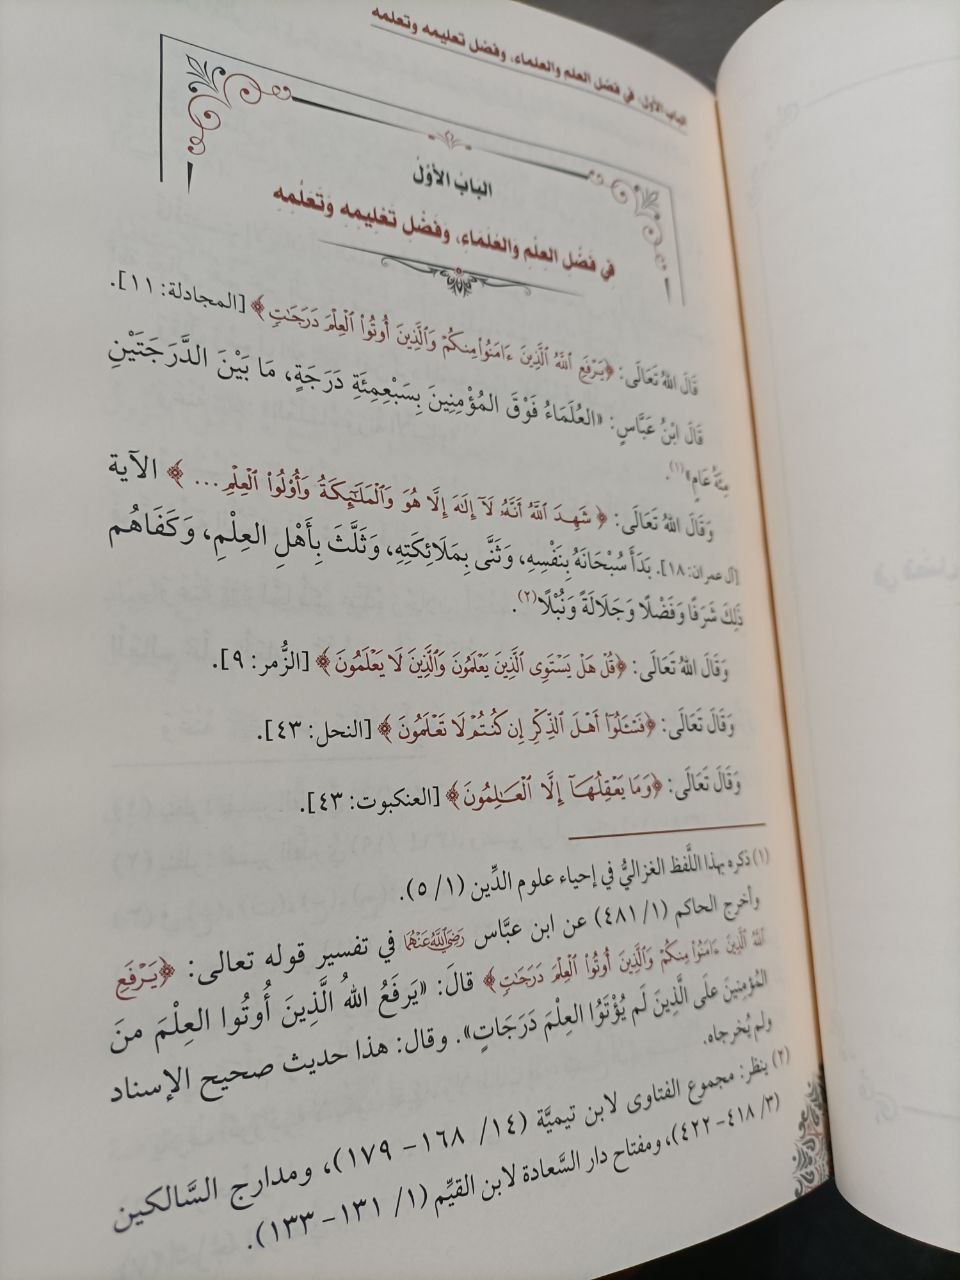 الباب الأول: في فضل العلم والعلماء، وفضل تعليمه وتعلمه
البَابُ الأَوَّلُ
فِي فَضْلِ العِلْمِ والعُلَمَاءِ، وَفَضْلِ تَعْلِيمِهِ وَتَعَلُّمِهِ
قَالَ اللهُ تَعَالَى: ﴿يَرْفَعِ ٱللَّهُ ٱلَّذِينَ ءَامَنُوا۟ مِنكُمْ وَٱلَّذِينَ أُوتُوا۟ ٱلْعِلْمَ دَرَجَٰتٍ﴾ [المجادلة: ١١].
قَالَ ابْنُ عَبَّاسٍ: «العُلَمَاءُ فَوْقَ المُؤْمِنِينَ بِسَبْعِمِئَةِ دَرَجَةٍ، مَا بَيْنَ الدَّرَجَتَيْنِ
مِئَةُ عَامٍ»(١).
وَقَالَ اللهُ تَعَالَى: ﴿شَهِدَ ٱللَّهُ أَنَّهُۥ لَآ إِلَٰهَ إِلَّا هُوَ وَٱلْمَلَٰٓئِكَةُ وَأُو۟لُوا۟ ٱلْعِلْمِ...﴾ الآية
[آل عمران: ١٨]. بَدَأَ سُبْحَانَهُ بِنَفْسِهِ، وَثَنَّى بِمَلَائِكَتِهِ، وَثَلَّثَ بِأَهْلِ العِلْمِ، وَكَفَاهُم
ذَلِكَ شَرَفًا وَفَضْلًا وَجَلَالَةً وَنُبْلًا(٢).
وَقَالَ اللهُ تَعَالَى: ﴿قُلْ هَلْ يَسْتَوِى ٱلَّذِينَ يَعْلَمُونَ وَٱلَّذِينَ لَا يَعْلَمُونَ﴾ [الزُّمر: ٩].
وَقَالَ تَعَالَى: ﴿فَسْـَٔلُوٓا۟ أَهْلَ ٱلذِّكْرِ إِن كُنتُمْ لَا تَعْلَمُونَ﴾ [النحل: ٤٣].
وَقَالَ تَعَالَى: ﴿وَمَا يَعْقِلُهَآ إِلَّا ٱلْعَٰلِمُونَ﴾ [العنكبوت: ٤٣].
(١) ذكره بهذا اللَّفظ الغزاليُّ في إحياء علوم الدِّين (١/ ٥).
وأخرج الحاكم (١/ ٤٨١) عن ابن عبَّاس رَضِيَ اللَّهُ عَنْهُمَا في تفسير قوله تعالى: ﴿يَرْفَعِ
ٱللَّهُ ٱلَّذِينَ ءَامَنُوا۟ مِنكُمْ وَٱلَّذِينَ أُوتُوا۟ ٱلْعِلْمَ دَرَجَٰتٍ﴾ قالَ: «يَرفَعُ اللهُ الَّذِينَ أُوتُوا العِلْمَ منَ
المُؤمِنِينَ علَى الَّذِينَ لَم يُؤْتَوُا العِلْمَ دَرَجَاتٍ». وقال: هذا حديث صحيح الإسناد
ولم يُخرجاه.
(٢) ينظر: مجموع الفتاوى لابن تيميَّة (١٤/ ١٦٨ – ١٧٩)، ومدارج السَّالكين
(٣/ ٤١٨ – ٤٢٢)، ومفتاح دار السَّعادة لابن القيِّم (١/ ١٣١ – ١٣٣).